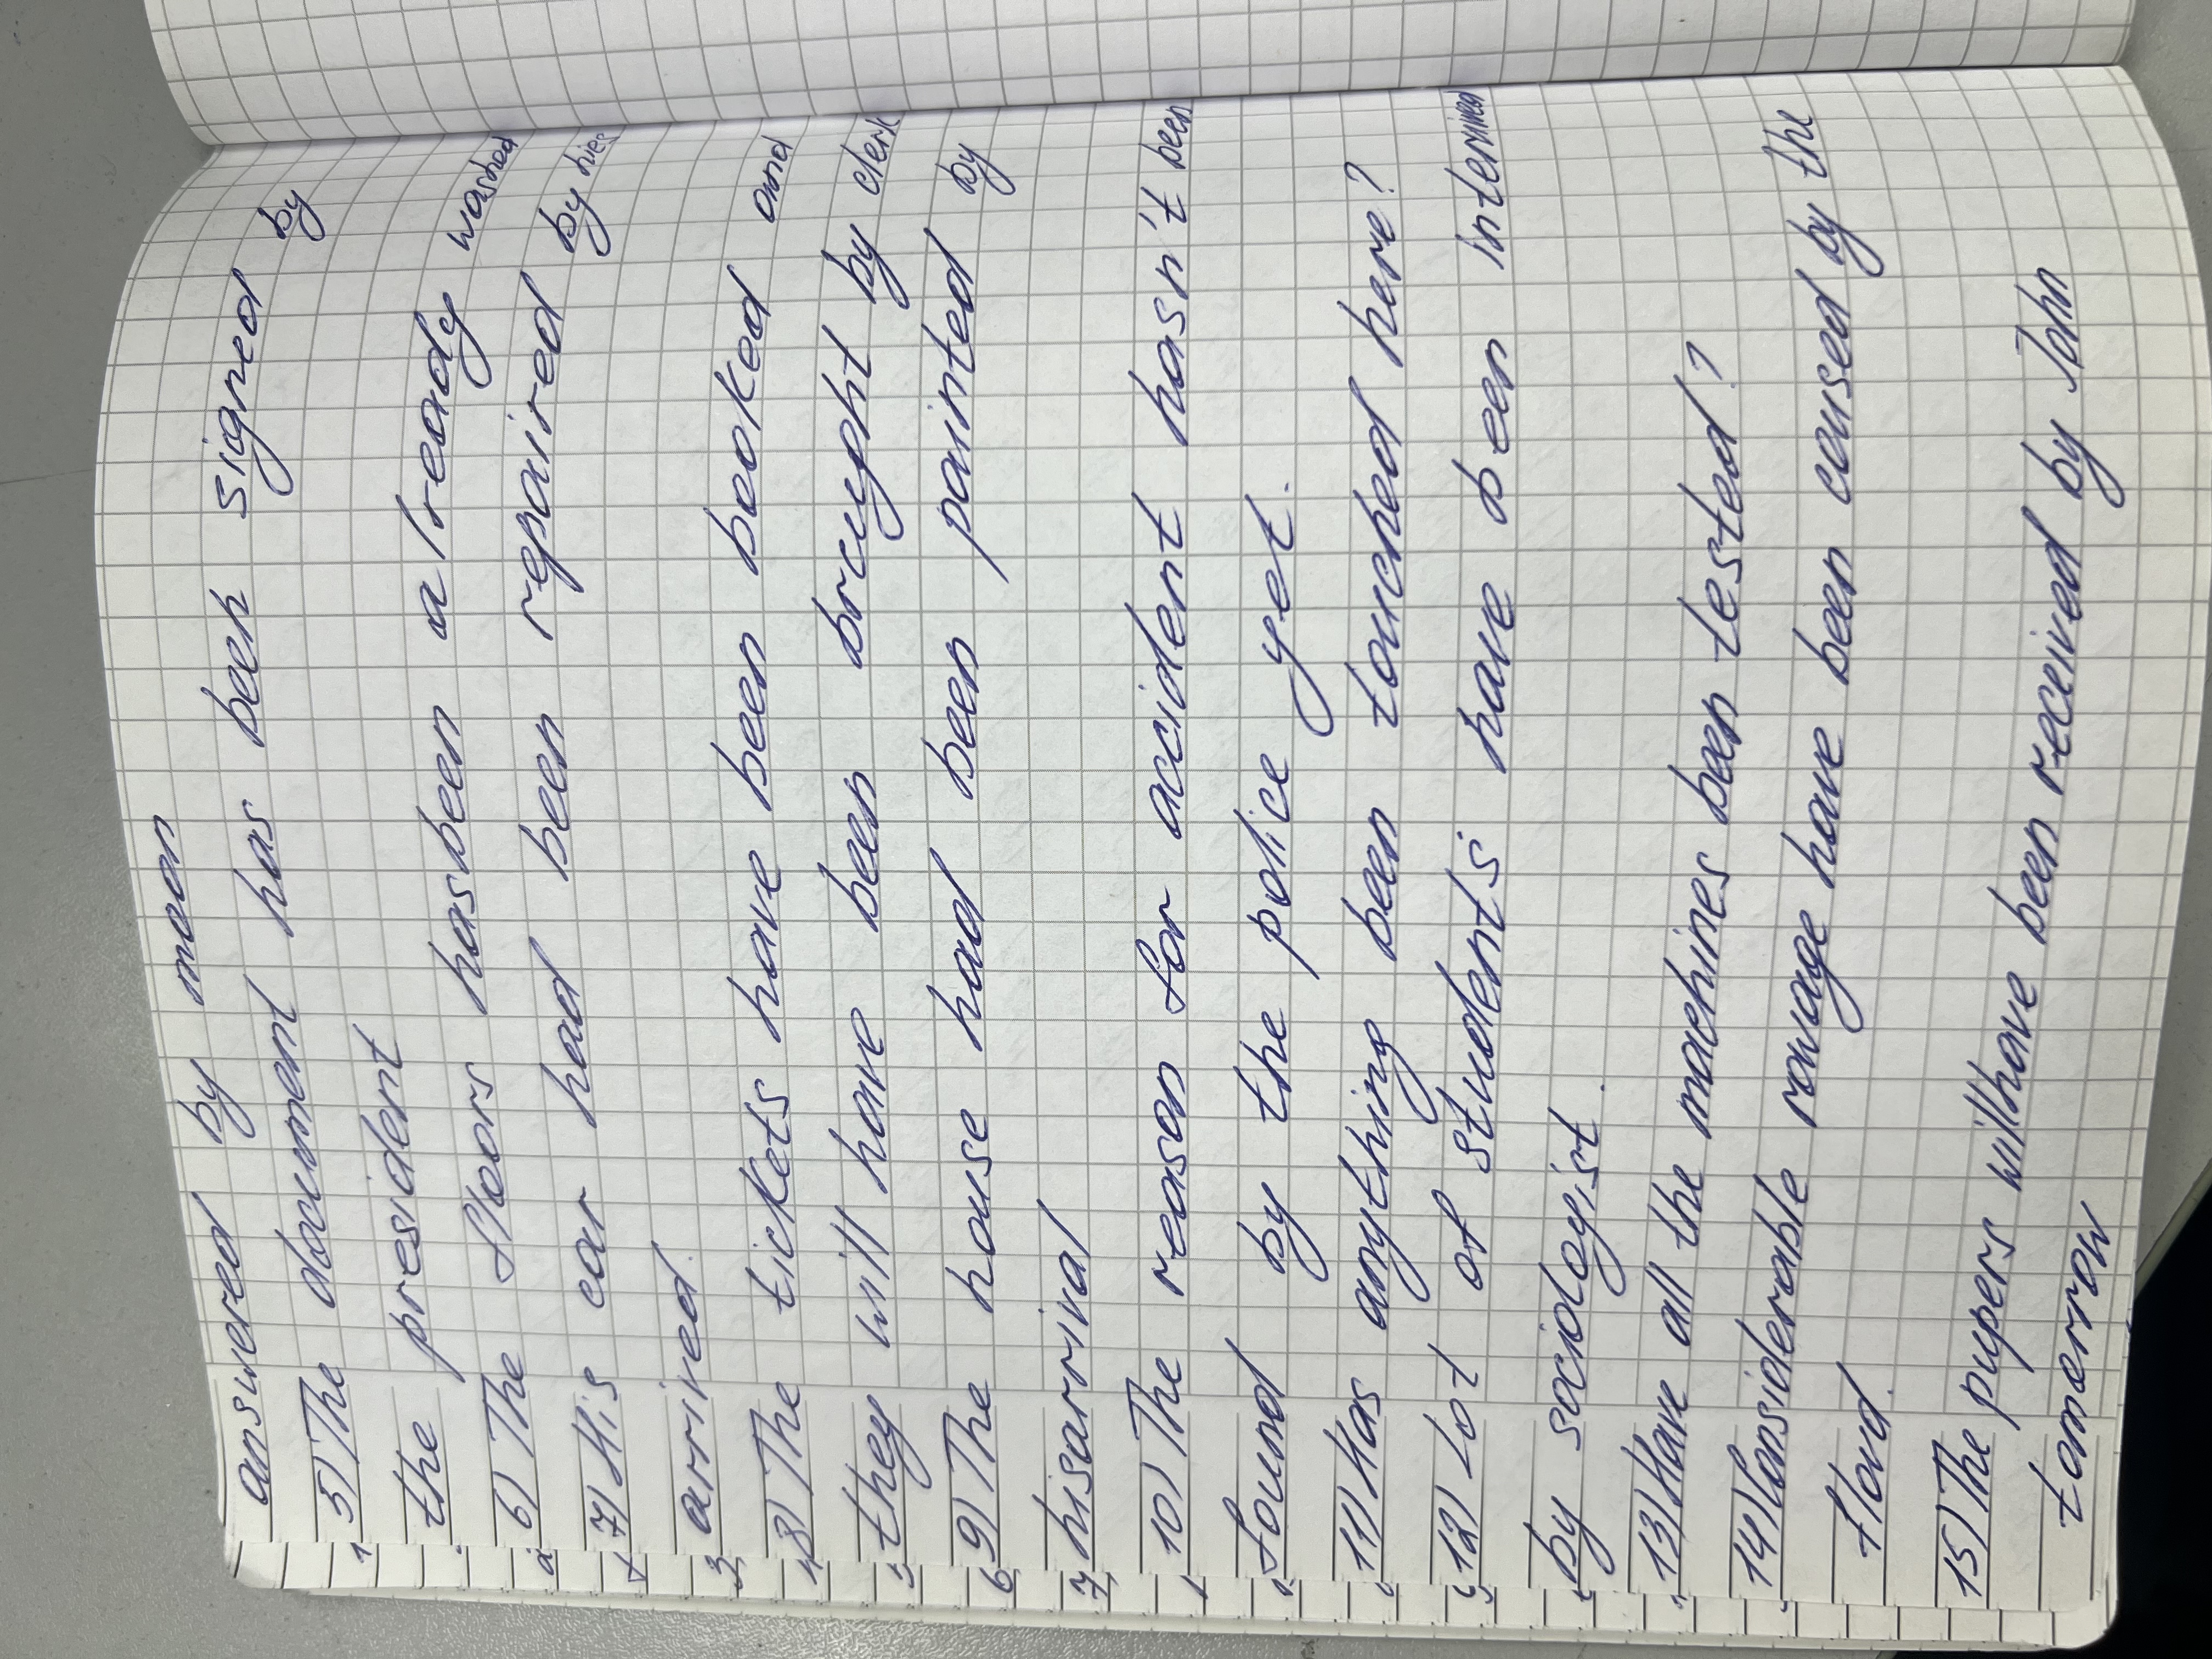 answered by man
5) The document has been signed by
the president
6) The floors hasbeen already washed
7) His car had been repaired by
arrived.
8) The tickets have been booked and
they will have been brought by clerk
9) The house had been painted by
hisarrival
10) The reason for accident hasn't been
found by the police yet.
11) Has anything been touched here?
12) Lot of students have been interviwed
by sociologist.
13) Have all the machines been tested?
14) Considerable ravage have been caused by the
flood.
15) The pupers willhave been received by John
tomorrow